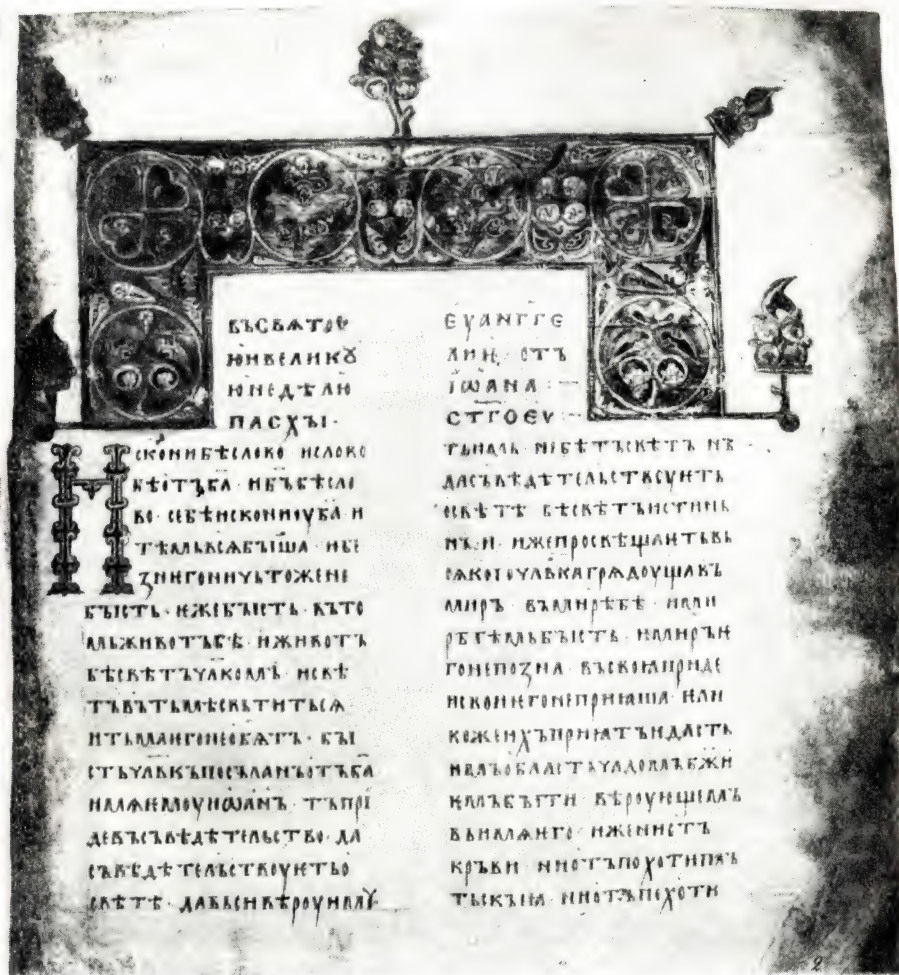 ВЪСВѦТОѤ
ЮИВЕЛИКꙊ
ЮНЕДѢЛЮ
ПАСХЪІ·
ИСКОНИБѢСЛОВО· ИСЛОВО
БѢОТЪБА· ИБЪБѢСЛО
ВО· СЕБѢИСКОНИОУБА· И
ТѢМЬВЬСѦБЫША· ИБЕ
ЗНИѤГОНИЧЬТОЖЕНЕ
БЪІСТЬ· ИЖЕБЪІСТЬ· ВЪТО
МЬЖИВОТЪБѢ· ИЖИВОТЪ
БѢСВѢТЪЧЛКОМЪ· ИСВѢ
ТЪВЪТЬМѢСВЬТИТЬСѦ·
ИТЬМАѤГОНЕОБѦТЪ· БЪІ
СТЬЧЛВКЪПОСЪЛАНЪОТЪБА
ИМѦѤМОУИѠАНЪ· ТЪПРІ
ДЕВЪСЪВѢДѢТЕЛЬСТВО· ДА
СЪВѢДѢТЕЛЬСТВОУѤТЬО
СВѢТѢ· ДАВЬСИВѢРОУИМꙊ
ЕУАНГГЕ
ЛИѤ· ОТЪ
ІѠАНА·
СТГОЕУ
ТЬИМЬ· НЕБѢТЪСВѢТЪ НЪ
ДАСЪВѢДѢТЕЛЬСТВОУѤТЬ
ОСВѢТѢ· БѢСВѢТЪИСТИНЬ
НЪИ· ИЖЕПРОСВѢЩАѤТЬВЬ
СѦКОГОЧЛВКАГРѦДОУЩАВЪ
МИРЪ· ВЪМИРѢБѢ· ИМИ
РЪТѢМЬБЪІСТЬ· ИМИРЪѤ
ГОНЕПОЗНА· ВЪСВОѨПРИДЕ
ИСВОИѤГОНЕПРИѨША· ѤЛИ
КОЖЕИХЪПРИѨТЪИДАСТЬ
ИМЪОБЛАСТЬЧѦДОМЪБЖИ
ѤМЪБЪІТИ· ВѢРОУЮЩЕМЪ
ВЬИМѦѤГО· ИЖЕНИОТЪ
КРЪВИ· НИОТЪПОХОТИПЛЪ
ТЬСКЪІѨ· НИОТЪПОХОТИ